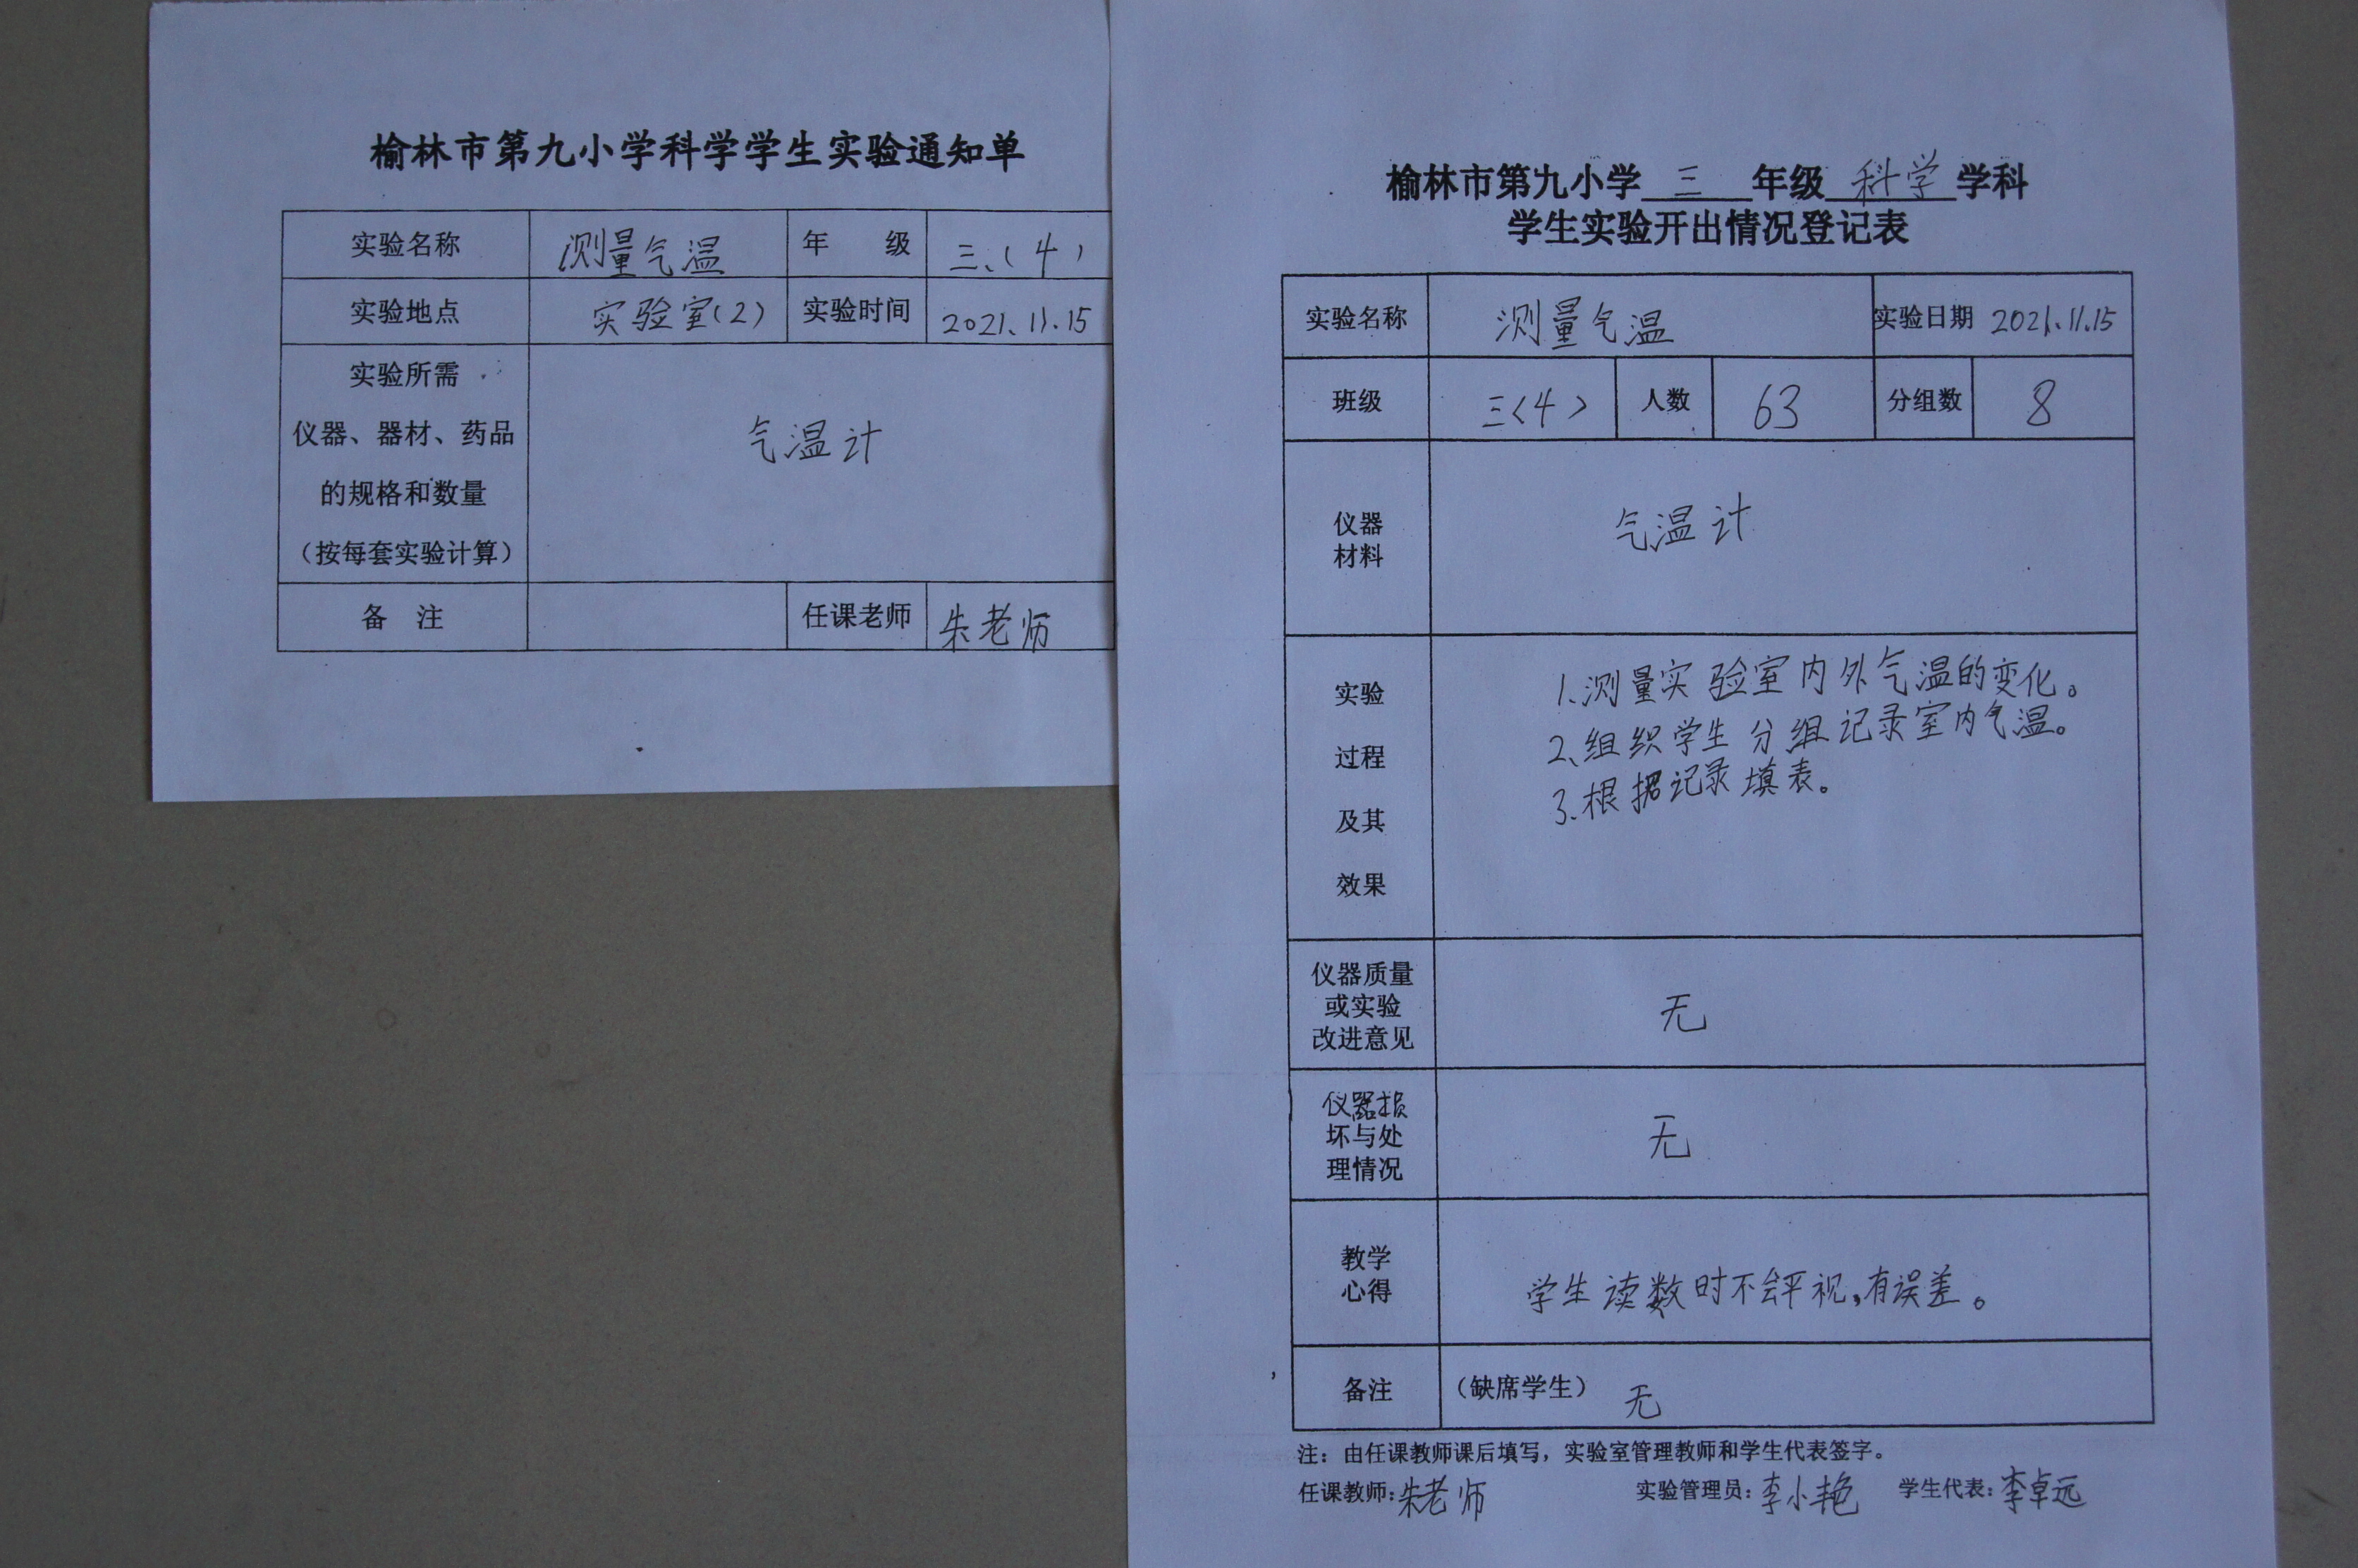 榆林市第九小学科学学生实验通知单
实验名称 测量气温 年 级 三、(4)
实验地点 实验室(2) 实验时间 2021.11.15
实验所需
仪器、器材、药品
的规格和数量
(按每套实验计算)
气温计
备 注 任课老师 朱老师
榆林市第九小学 三 年级 科学 学科
学生实验开出情况登记表
实验名称 测量气温 实验日期 2021.11.15
班级 三<4> 人数 63 分组数 8
仪器
材料
气温计
实验
过程
及其
效果
1.测量实验室内外气温的变化。
2、组织学生分组记录室内气温。
3.根据记录填表。
仪器质量
或实验
改进意见
无
仪器损
坏与处
理情况
无
教学
心得
学生读数时不会平视,有误差。
备注 (缺席学生) 无
注:由任课教师课后填写,实验室管理教师和学生代表签字。
任课教师:朱老师 实验管理员:李小艳 学生代表:李卓远